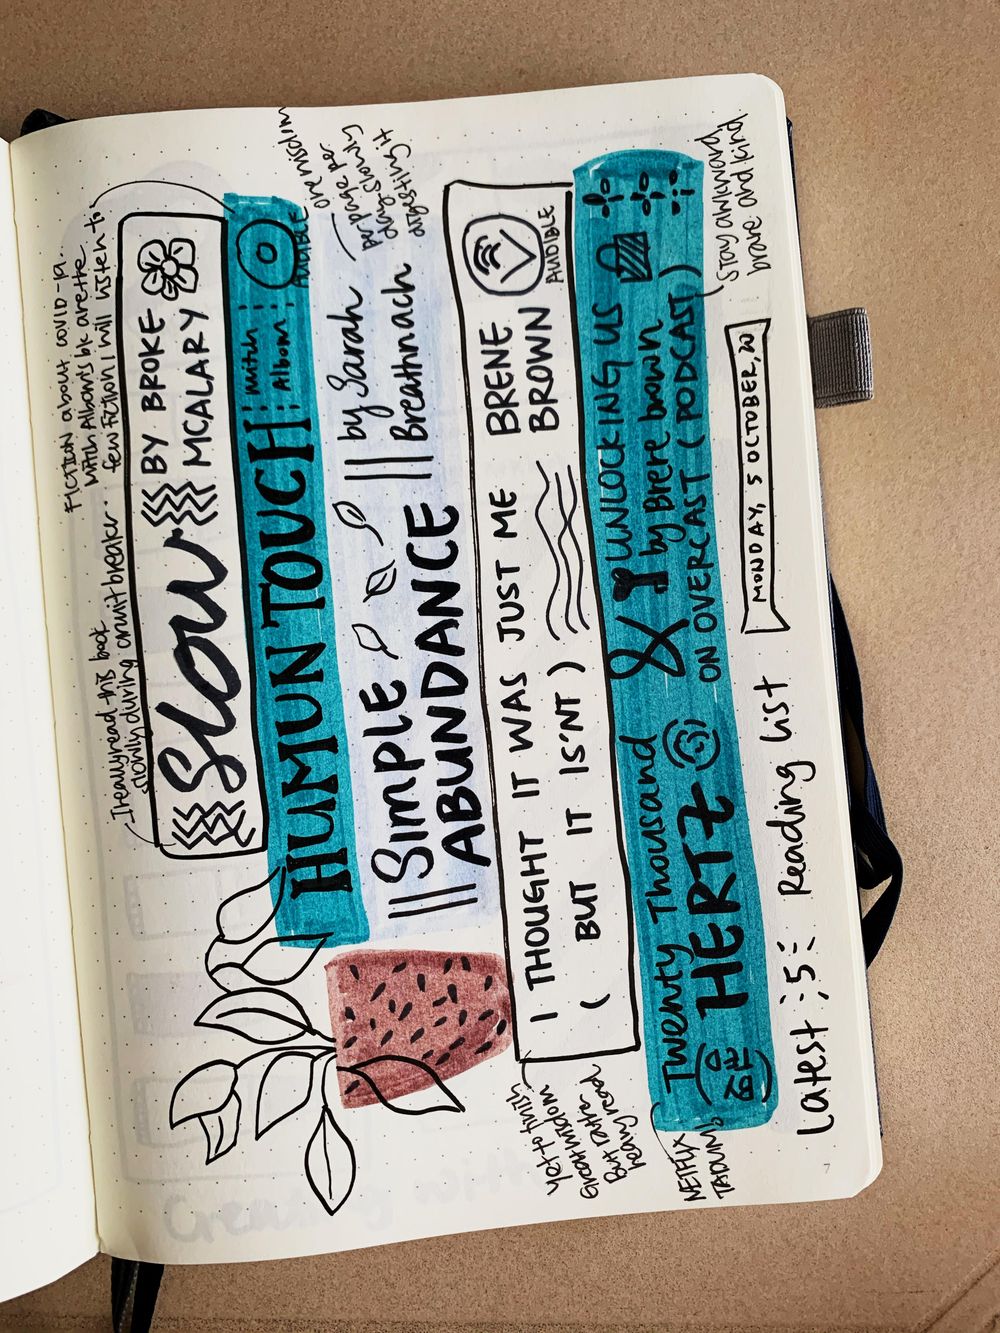 I really read this book
slowly during circuit breaker..
FICTION about COVID-19.
Mitch Albom's bk are the
few fiction I will listen to
SLOW
BY BROKE
MCALARY
HUMUN TOUCH
MITCH
Albom
AUDIBLE
SIMPLE
ABUNDANCE
by Sarah
Breathnach
one wisdom
page per
day. Slowly
digesting it
I THOUGHT IT WAS JUST ME
( BUT IT IS'NT )
BRENE
BROWN
AUDIBLE
Yet to finish.
Great wisdom
But rather
heavy read
Twenty Thousand
HERTZ
&
UNLOCKING US
by Brene brown
ON OVERCAST ( PODCAST )
NETFLIX
TADUM!
Stay awkward
brave and kind
Latest :5: Reading List
MONDAY, 5 OCTOBER, 20
7